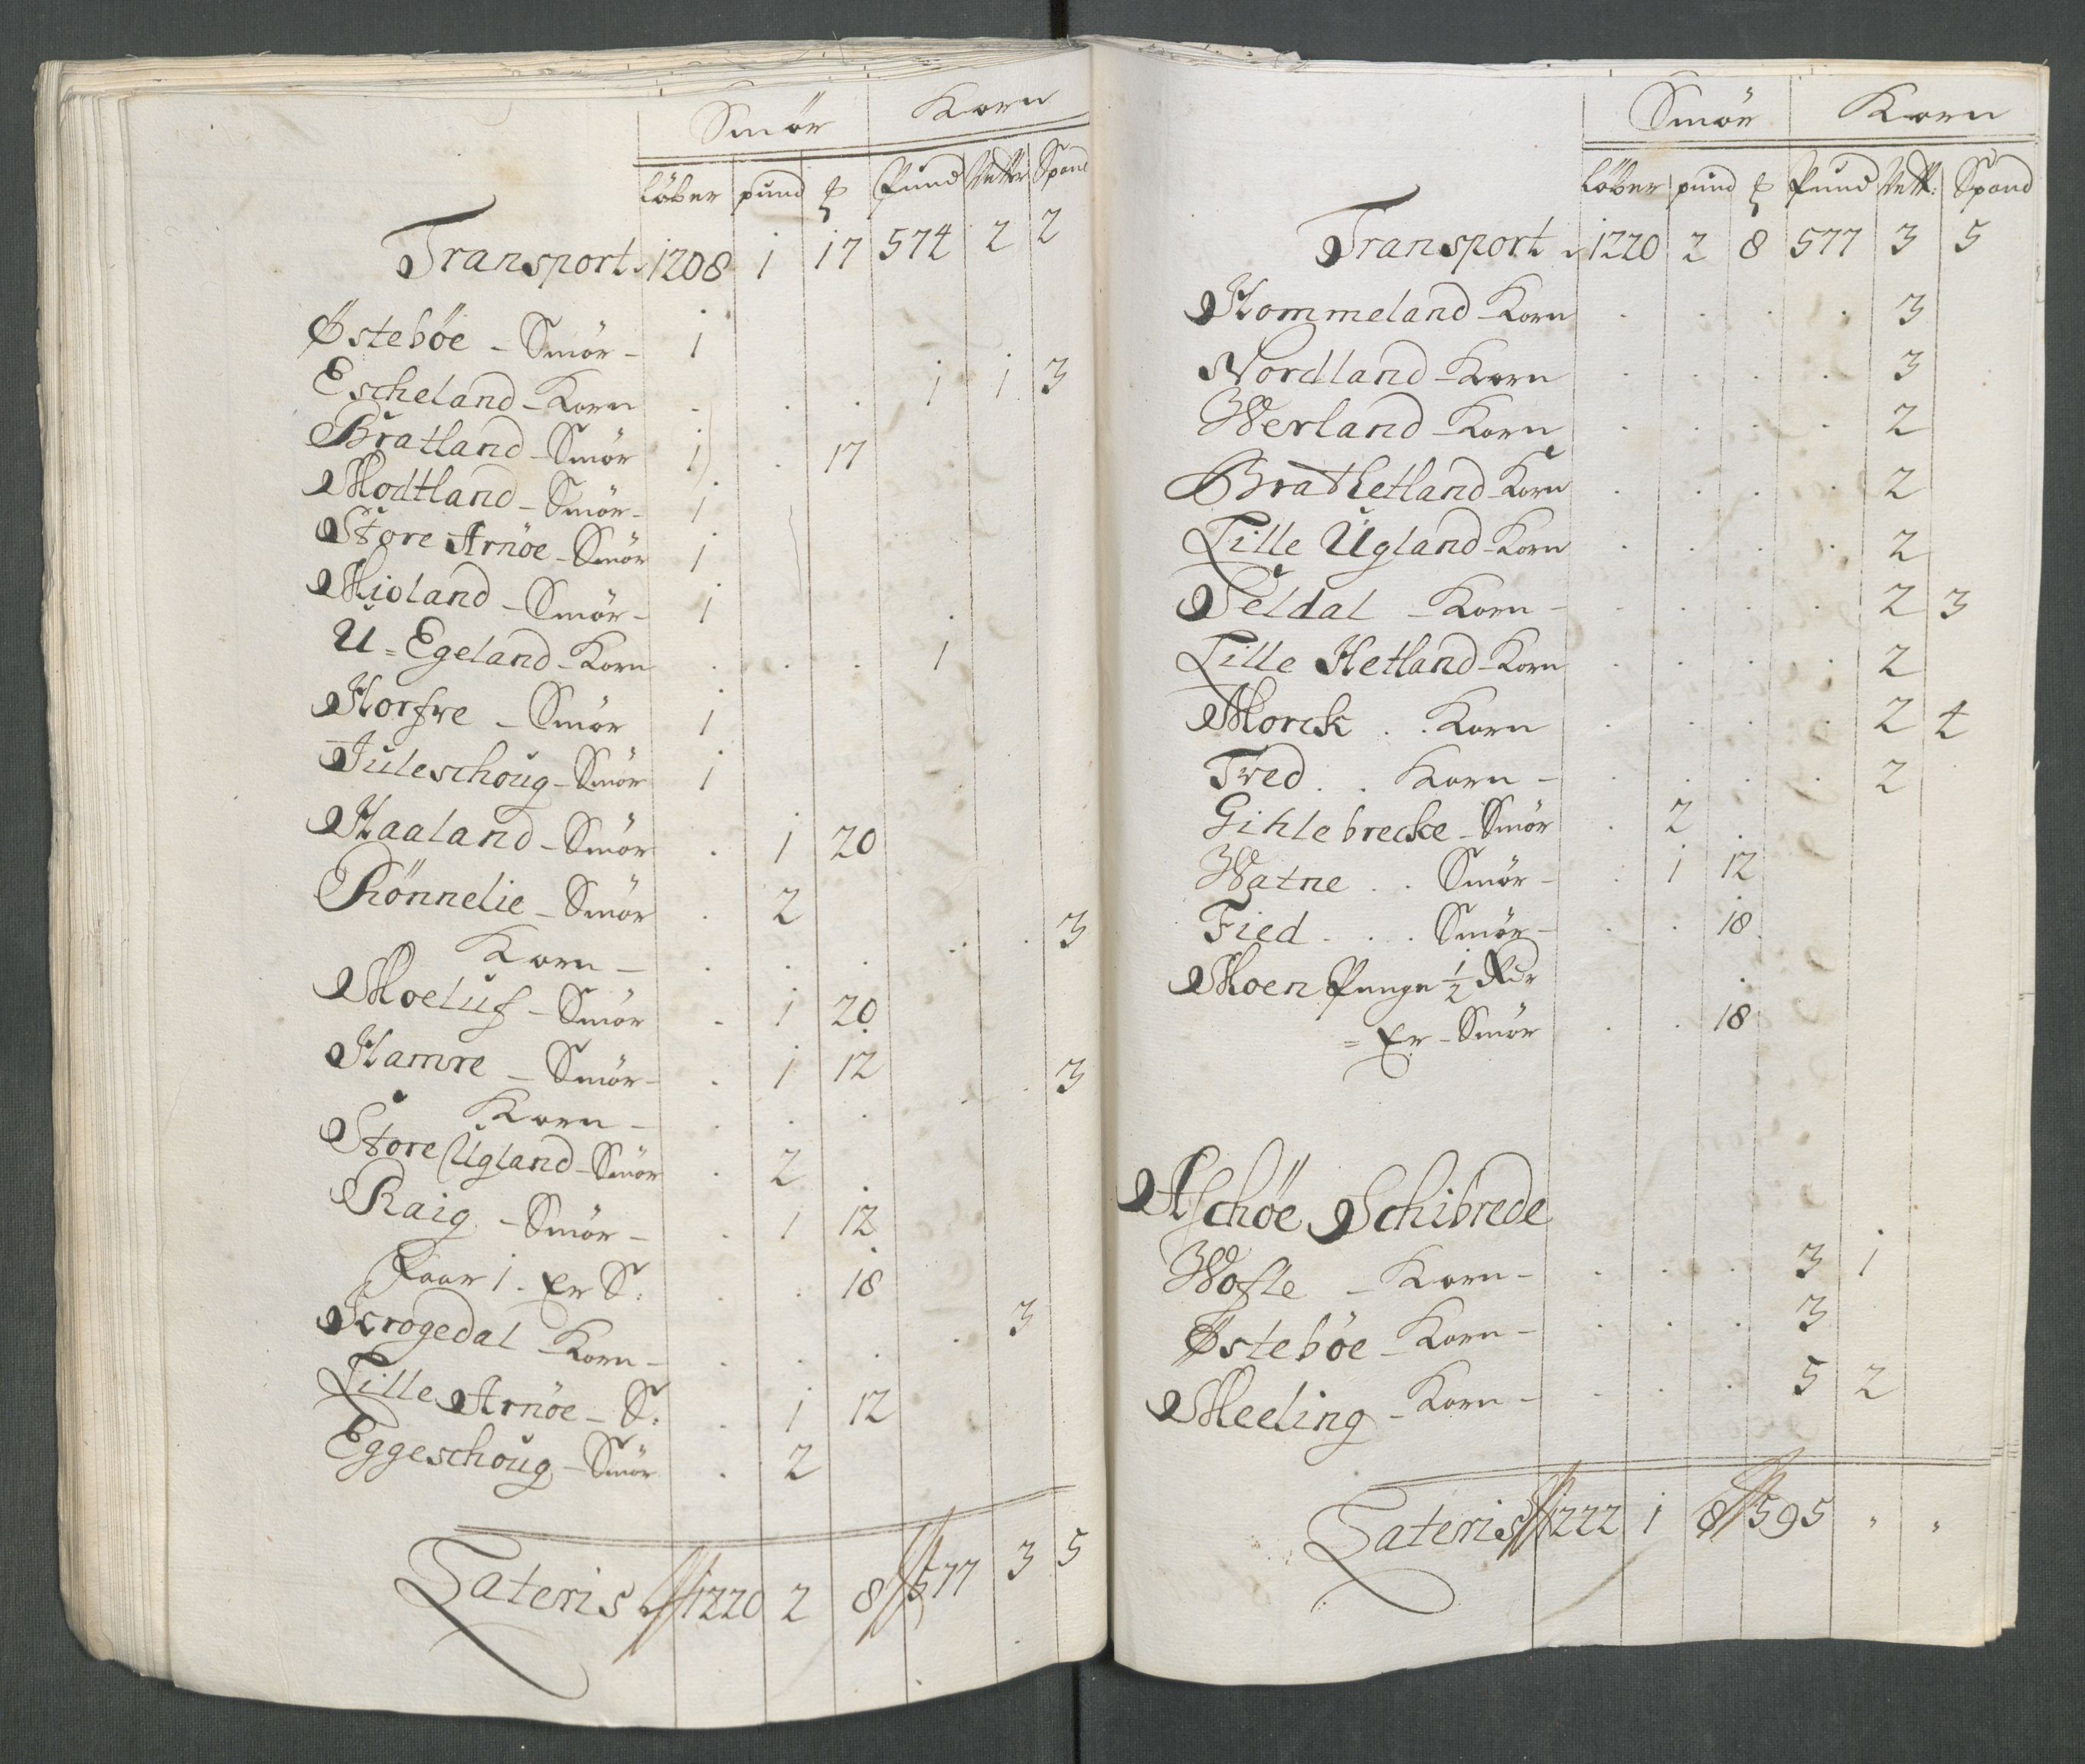 Smör Korn
löber pund ℔ Pund Vetter Spand
Transport 1208 1 17 574 2 2
Östeböe - Smör - 1
Escheland - Korn . . . 1 1 3
Bratland - Smör 1 . 17
Modtland - Smör - 1
Store Arnöe - Smör 1
Mioland - Smör - 1
U = Egeland - Korn . . . 1
Horfve - Smör 1
Juleschoug - Smör 1
Haaland - Smör . 1 20
Rönnelie - Smör . 2
Korn - . . . . . 3
Moeluf - Smör - 1 20
Hamre - Smör - . 1 12
Korn - . . . . . 3
Store Ugland - Smör . 2
Raig - Smör - . 1 12
Faar 1 . Er S: . . 18
Scrogedal Korn - . . . . 3
Lille Arnöe - S: . 1 12
Eggeschoug - Smör . 2
Lateris 1220 2 8 577 3 5
Smör Korn
löber pund ℔ Pund Vett: Spand
Transport 1220 2 8 577 3 5
Hommeland - Korn . . . . 3
Nordland - Korn . . . . 3
Werland - Korn . . . . 2
Brathetland - Korn . . . . 2
Lille Ugland - Korn . . . . 2
Seldal - Korn - . . . . 2 3
Lille Hetland - Korn . . . . 2
Morck . . Korn . . . . 2 4
Tved . . Korn - . . . . 2
Gihlebrecke - Smör . 2 .
Watne . . Smör - . 1 12
Fied . . . Smör - . . 18
Moen Penge ½ Rdr
= Er - Smör . . 18
Aschöe Schibrede
Wofle - Korn - . . . 3 1
Östeböe - Korn - . . . 3
Meeling - Korn - . . . 5 2
Lateris 1222 1 8 595 " "